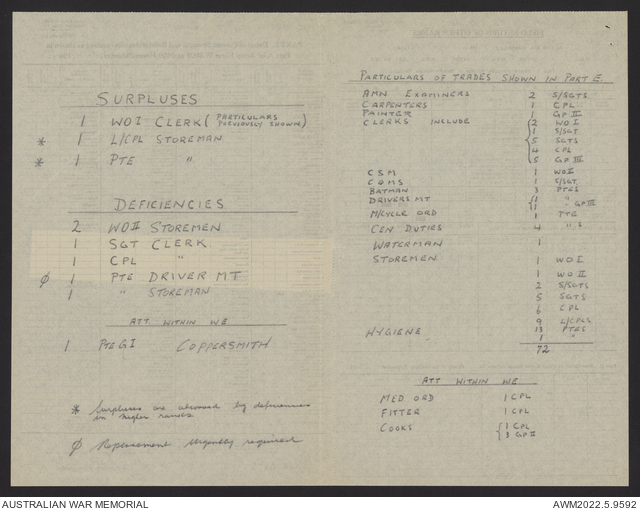 SURPLUSES
1 WO I CLERK (PARTICULARS PREVIOUSLY SHOWN)
* 1 L/CPL STOREMAN
* 1 PTE "
DEFICIENCIES
2 WO II STOREMEN
1 SGT CLERK
1 CPL "
ø 1 PTE DRIVER MT
1 " STOREMAN
ATT WITHIN WE
1 PTE GI COPPERSMITH
* Surpluses are absorbed by deficiencies
in higher ranks.
ø Replacement urgently required
PARTICULARS OF TRADES SHOWN IN PART E.
AMN EXAMINERS 2 S/SGTS
CARPENTERS 1 CPL
PAINTER 1 GP III
CLERKS INCLUDE 2 WO I
1 S/SGT
5 SGTS
4 CPL
5 GP III
CSM 1 WO II
CQMS 1 S/SGT
BATMAN 3 PTES
DRIVERS MT 1 "
1 " GP III
M/CYCLE ORD 1 PTE
GEN DUTIES 4 " S
WATERMAN 1
STOREMEN 1 WO I
1 WO II
2 S/SGTS
5 SGTS
6 CPL
9 L/CPLS
13 PTES
HYGIENE 1 "
72
ATT WITHIN WE
MED ORD 1 CPL
FITTER 1 CPL
COOKS 1 CPL
3 GP II
AUSTRALIAN WAR MEMORIAL
AWM2022.5.9592